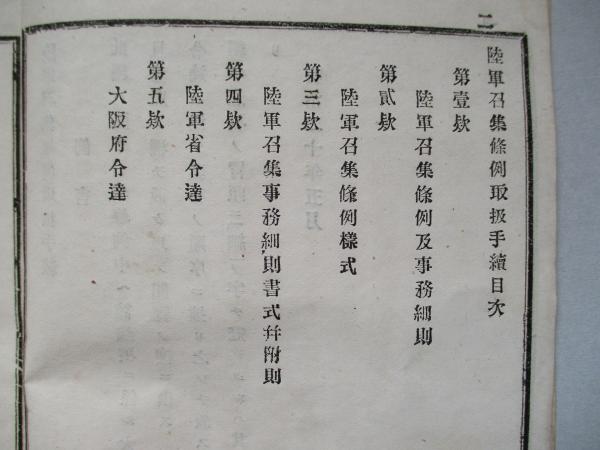 二
陸軍召集條例取扱手續目次
第壹欵
陸軍召集條例及事務細則
第貳欵
陸軍召集條例樣式
第三欵
陸軍召集事務細則書式幷附則
第四欵
陸軍省令達
第五欵
大阪府令達